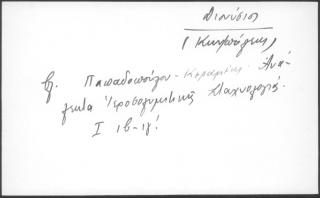 Διονύσιος
βλ. Παπαδοπούλου - Κεραμέως. Ἀνά-
λεκτα Ἱεροσολυμιτικῆς Σταχυολογίας.
I ιβ-ιγ'.